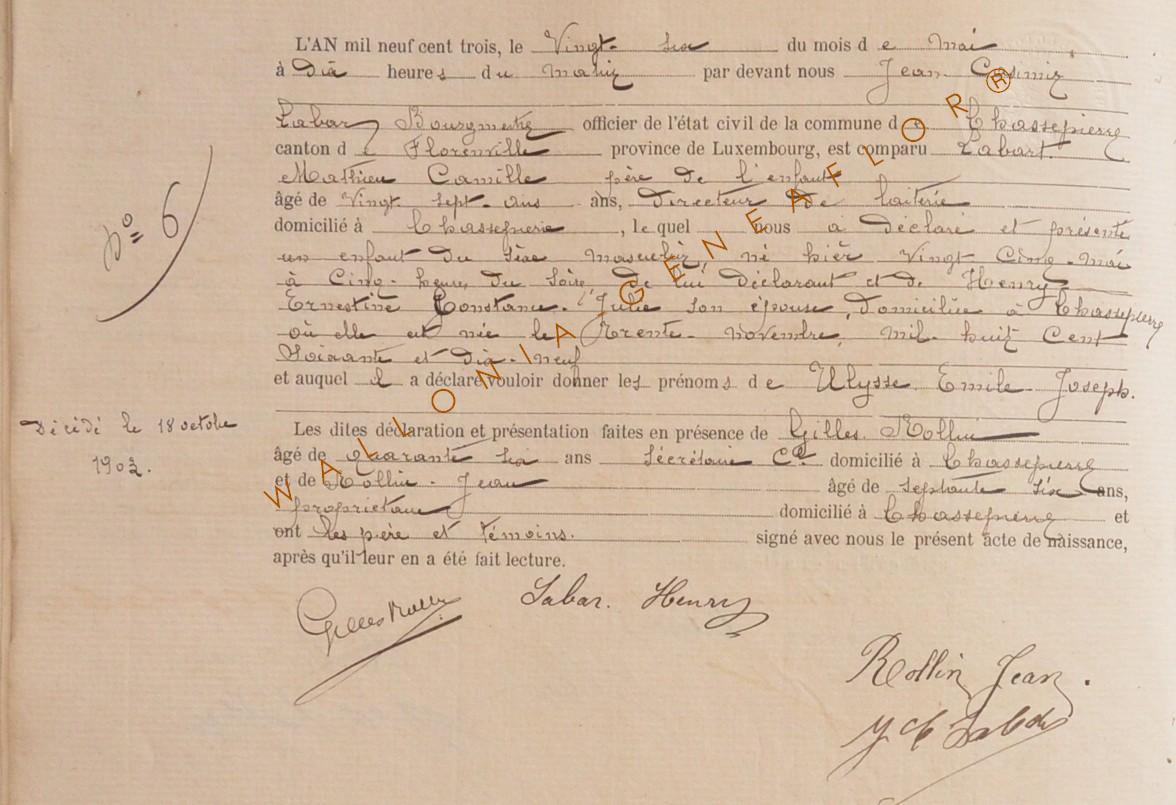 L'AN mil neuf cent trois, le Vingt-six du mois de Mai
à Dix heures du matin par devant nous Jean Casimir
Labar Bourgmestre officier de l'état civil de la commune de Chassepierre
canton de Florenville province de Luxembourg, est comparu Labart
Mathieu Camille père de l'enfant
âgé de Vingt sept ans ans, Directeur de laiterie
domicilié à Chassepierre, le quel nous a déclaré et présenté
un enfant du sèxe masculin, né hier Vingt Cinq Mai
à Cinq heures du Soir, de lui déclarant et de Henry
Ernestine Constance Julie son épouse, domiciliée à Chassepierre
où elle est née le Trente novembre, mil huit Cent
Soixante et dix-neuf
et auquel il a déclaré vouloir donner les prénoms de Ulysse Emile Joseph.
N° 6
Les dites déclaration et présentation faites en présence de Gilles Rollin
Décédé le 18 octobre
1903.
âgé de quarante six ans Sécrétaire Cal domicilié à Chassepierre
et de Rollin Jean âgé de Septante Six ans,
propriétaire domicilié à Chassepierre et
ont les père et témoins. signé avec nous le présent acte de naissance,
après qu'il leur en a été fait lecture.
Gilles Rollin Labar. Henry
Rollin Jean.
WALLONIA GENEAFLOR ®